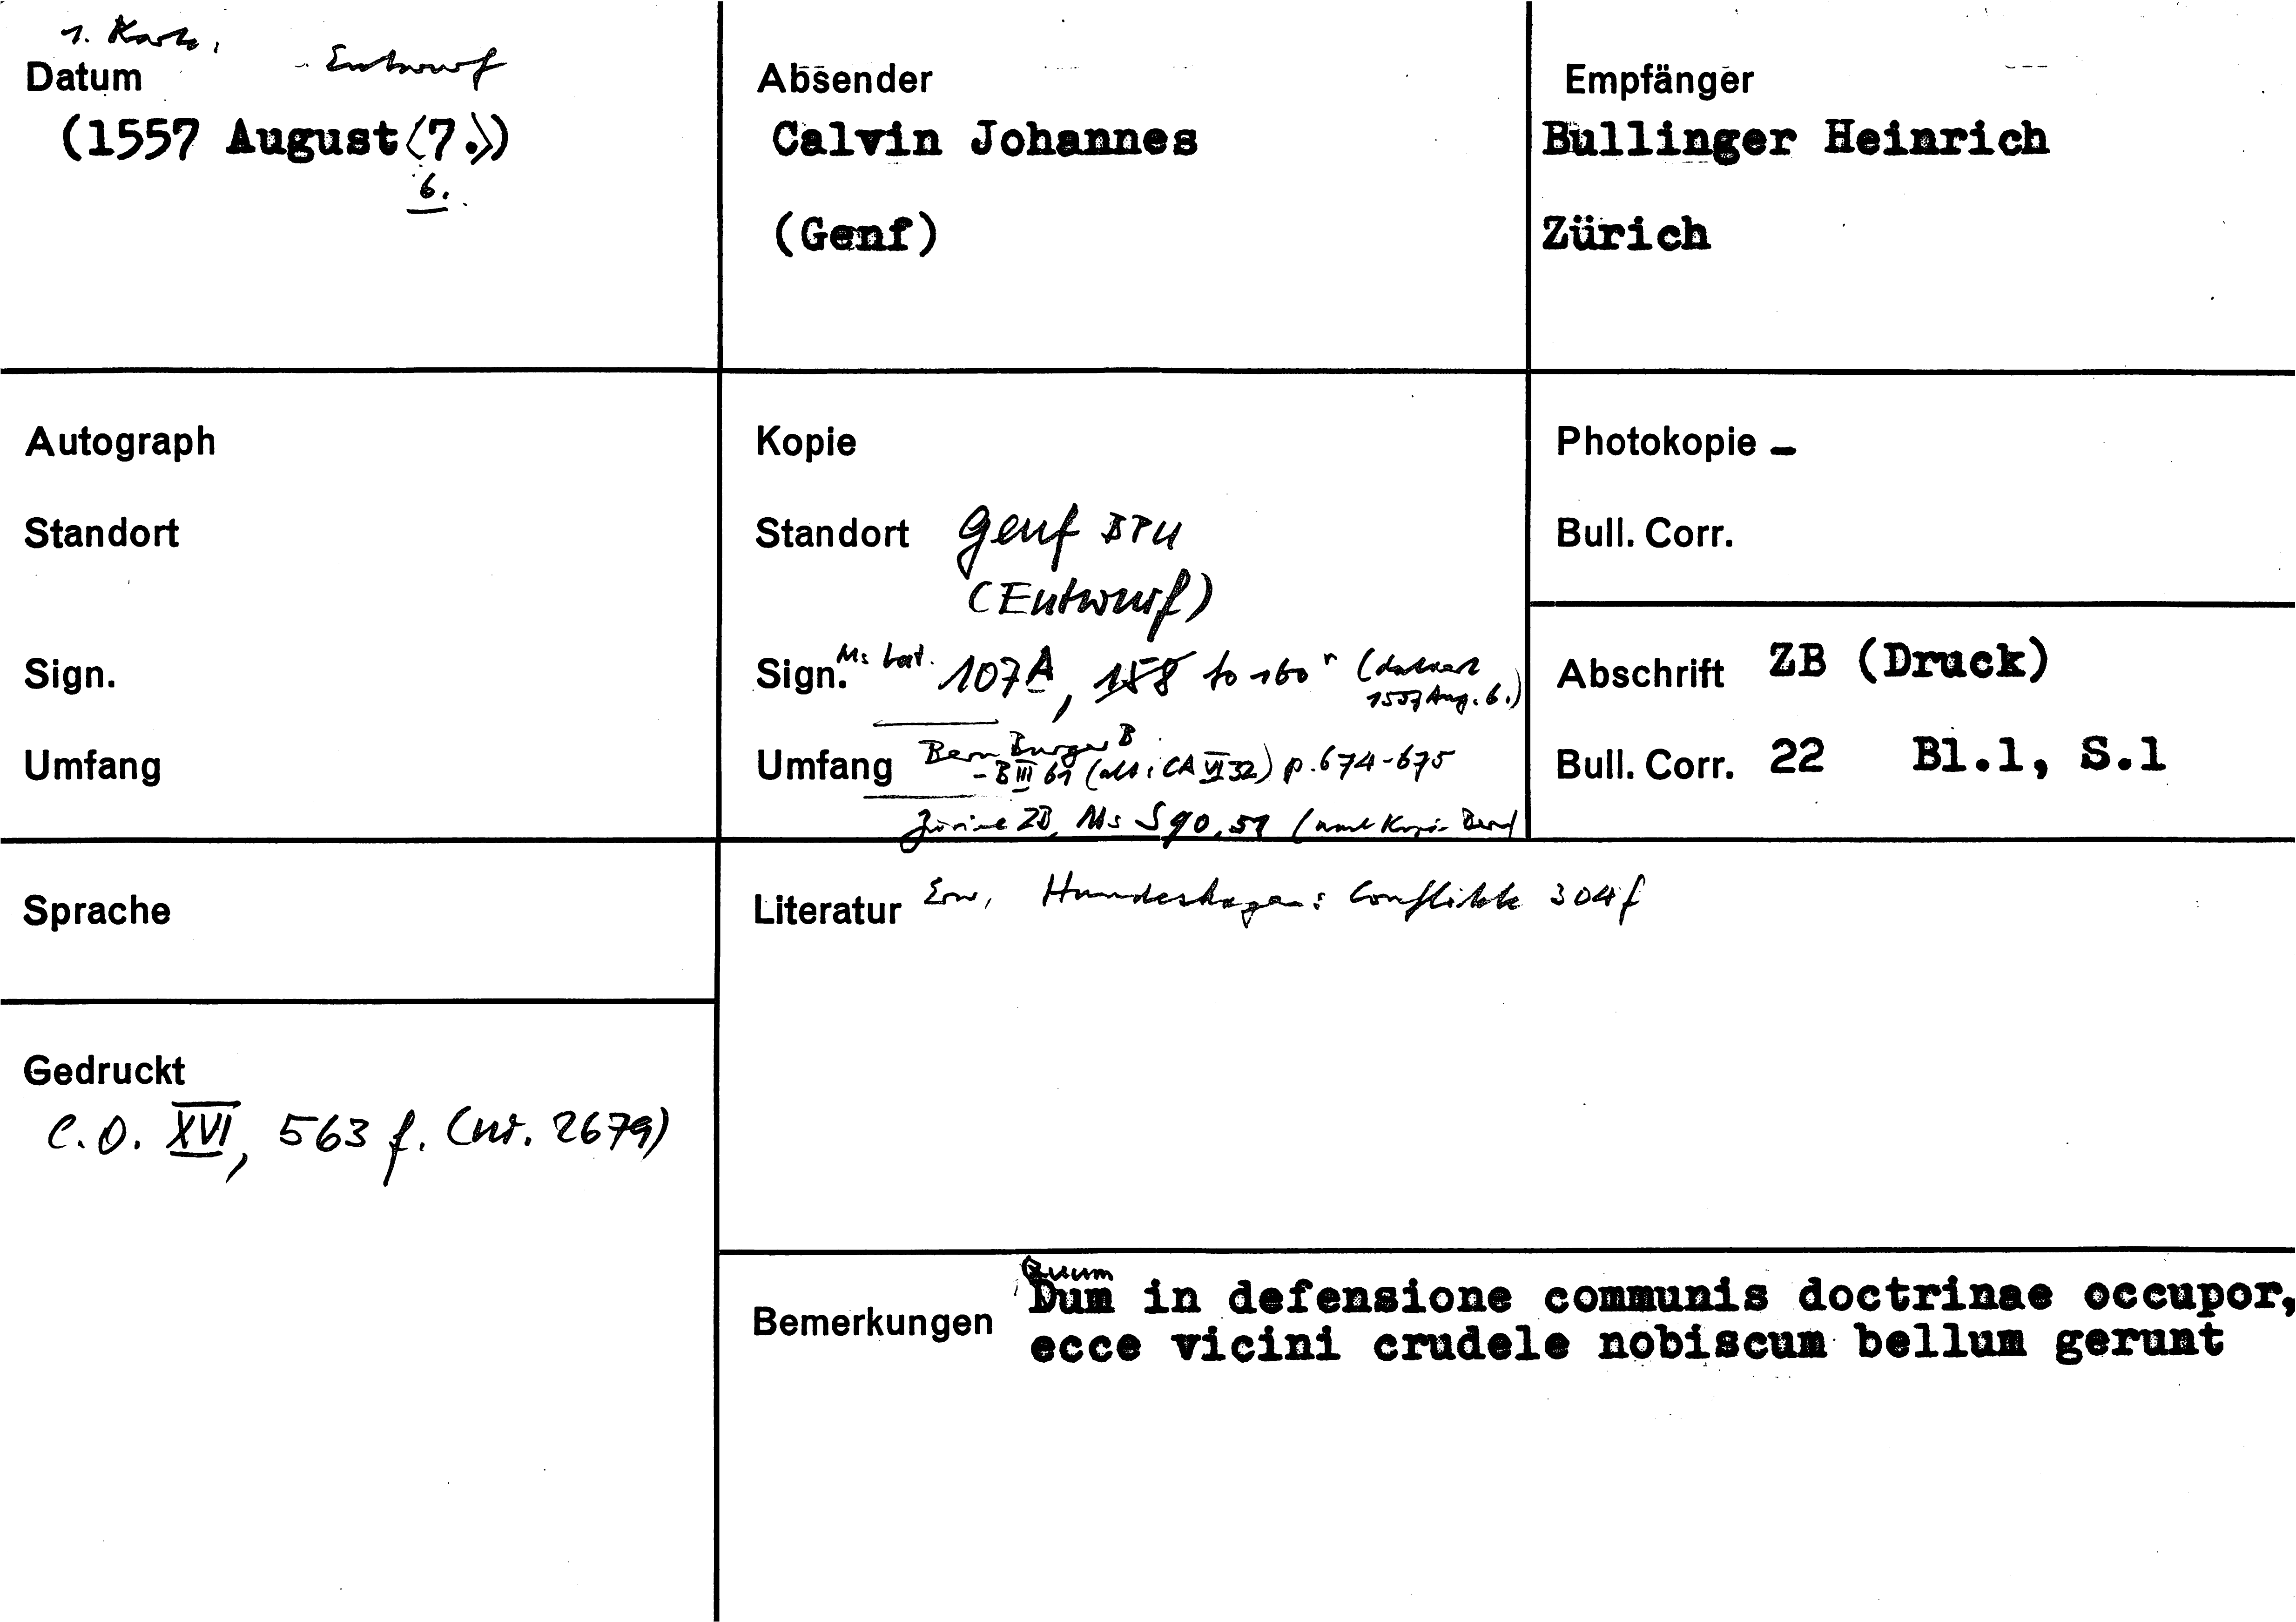 1. Karte, - Entwurf
Datum
(1557 August (7.))
6.
Absender
Calvin Johannes
(Genf)
Empfänger
Bullinger Heinrich
Zürich
Autograph
Standort
Sign.
Umfang
Kopie
Standort Genf BPU
(Entwurf)
Sign. Ms lat. 107A, 158 fo 160 r (datiert
1557 Aug. 6.)
Bern Burger B
Umfang - B III 61 (alt: CA VI 32) p. 674-675
Zürich ZB, Ms S 90, 51 (nach Kopie Bern)
Photokopie -
Bull. Corr.
Abschrift ZB (Druck)
Bull. Corr. 22 Bl.1, S.1
Sprache
Gedruckt
C.O. XVI, 563 f. (nr. 2679)
Literatur Erw. Hundeshagen: Conflikte 304 f
Quum
Bemerkungen Dum in defensione communis doctrinae occupor,
ecce vicini crudele nobiscum bellum gerunt